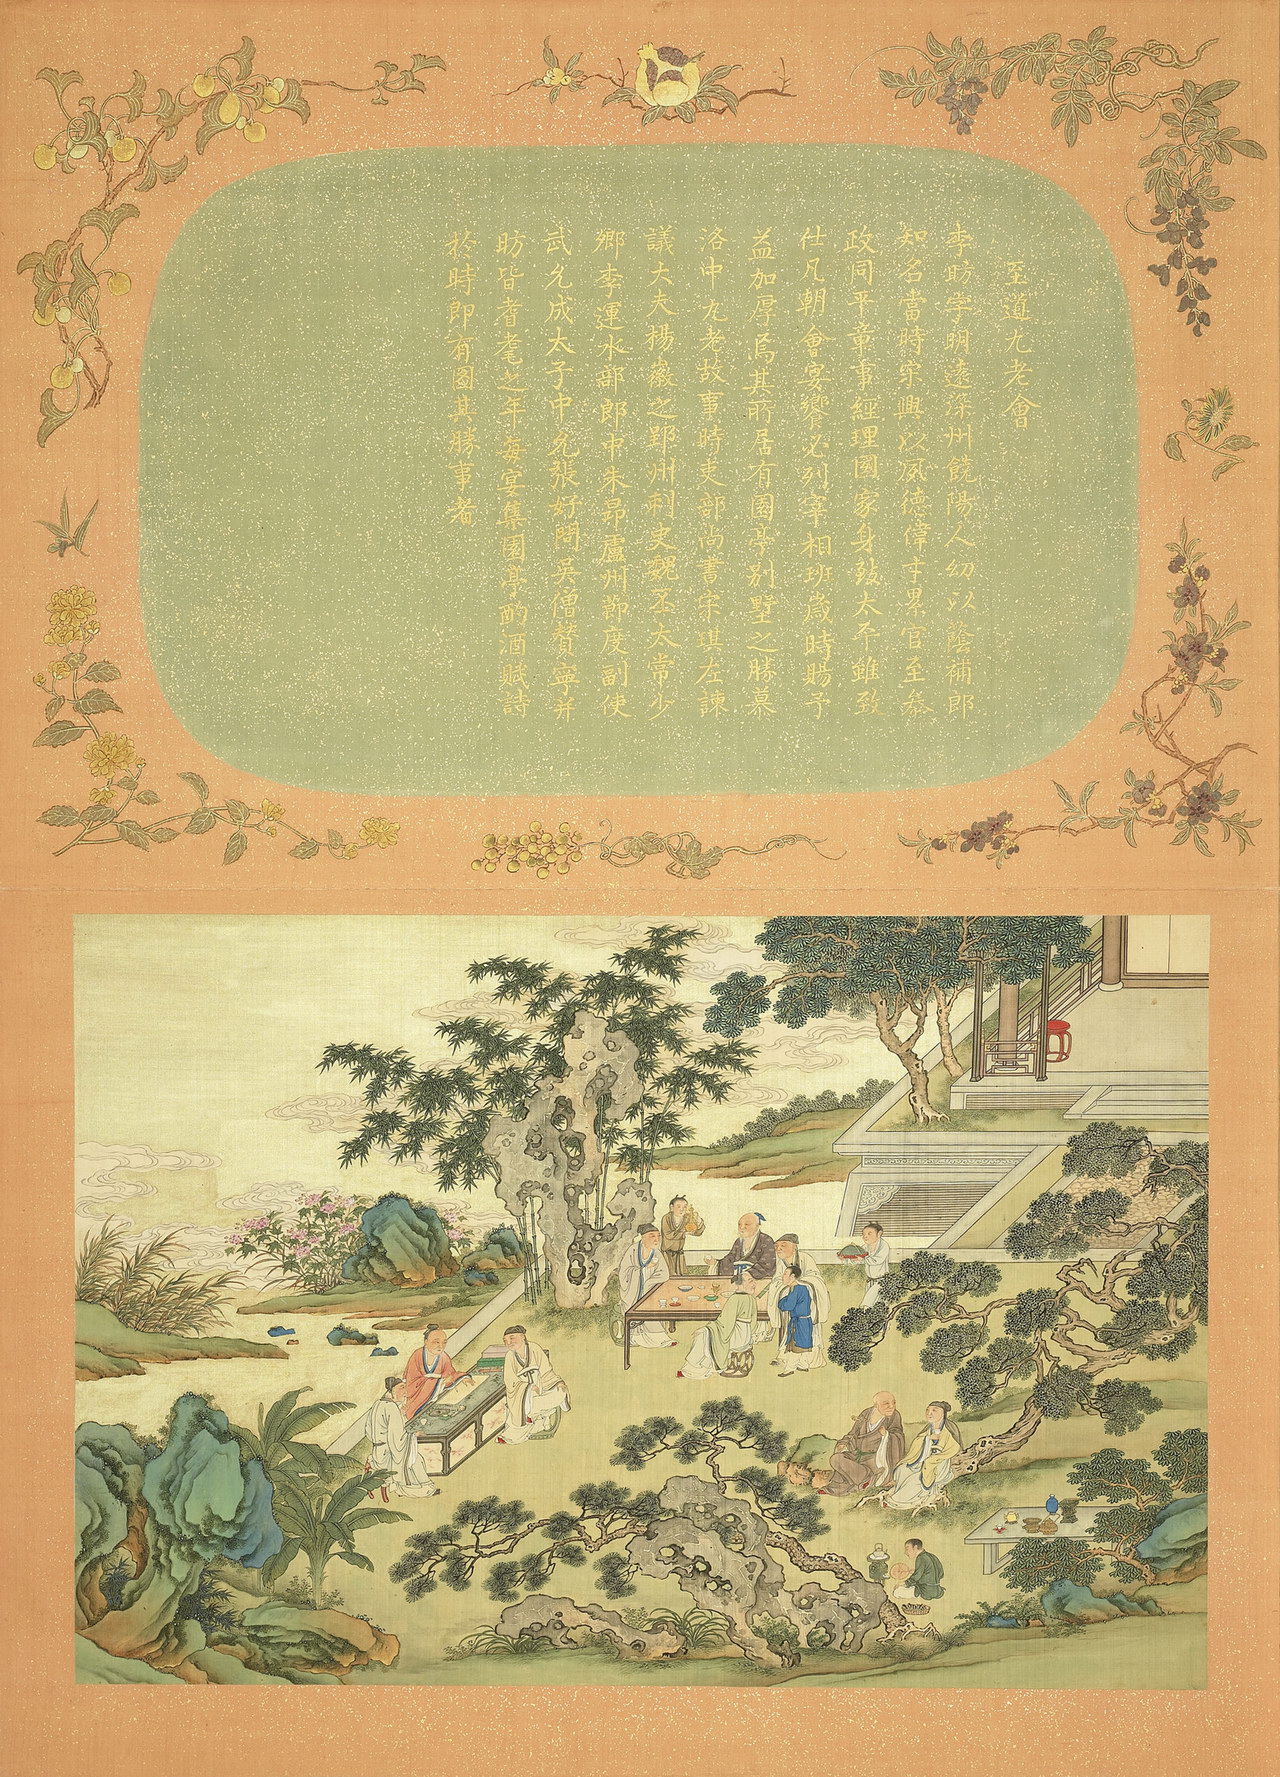 至道九老會
李昉字明遠深州饒陽人幼以蔭補郎
知名當時宋興以夙德偉才累官至叅
政同平章事經理國家身致太平雖致
仕凡朝會宴饗必列宰相班歲時賜予
益加厚焉其所居有園亭别墅之勝慕
洛中九老故事時吏部尚書宋琪左諫
議大夫楊徽之郢州刺史魏丕太常少
卿李運水部郎中朱昂廬州節度副使
武允成太子中允張好問吳僧贊寧并
昉皆耆耄之年每宴集園亭酌酒賦詩
於時即有圖其勝事者